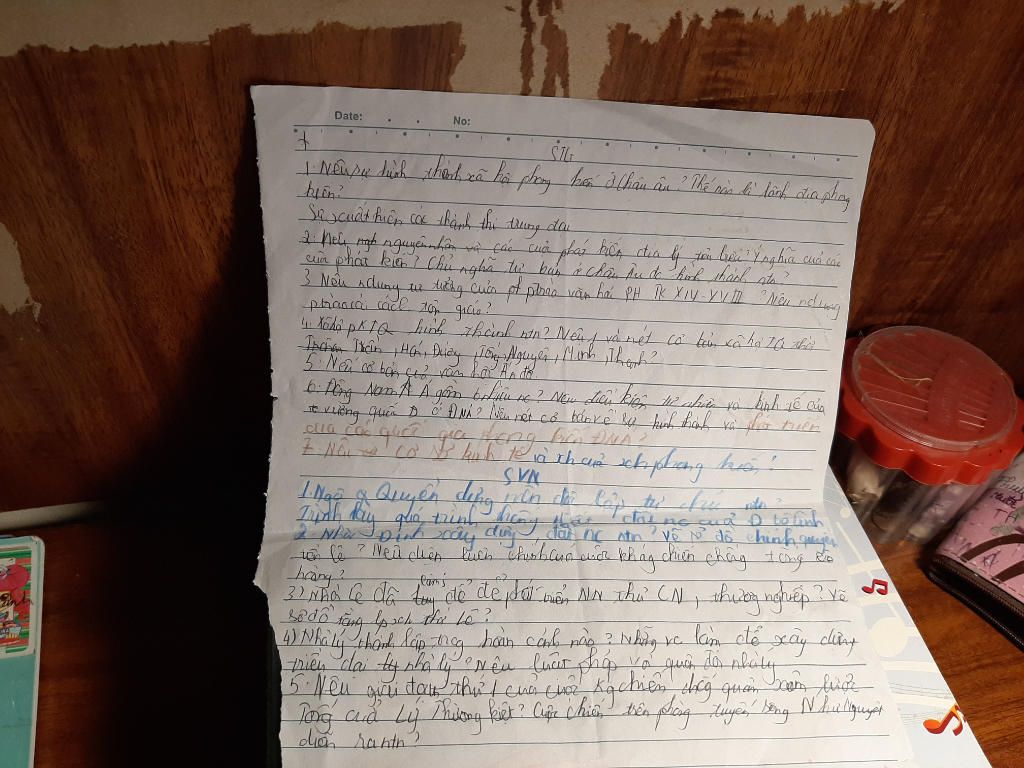 Date: No:
STG
1. Nêu sự hình thành xã hội phong kiến ở Châu âu? Thế nào là lãnh địa phong
kiến?
Sự xuất hiện các thành thị trung đại
2. Nêu nguyên nhân và các cuộc phát kiến địa lý tiêu biểu? Ý nghĩa của các
cuộc phát kiến? Chủ nghĩa tư bản ở Châu Âu đc hình thành ntn?
3. Nêu ndung tư tưởng của pt văn hoá PH TK XIV-XVII? Nêu ndung
ptrào cải cách tôn giáo?
4. Xã hội PKTQ hình thành ntn? Nêu và nét cơ bản xã hội TQ thời
Tần, Hán, Đường, Tống, Nguyên, Minh, Thanh?
5. Nêu cơ bản của văn hoá Ấn độ
6. Đông Nam Á gồm nc? Nêu điều kiện tự nhiên và
vương quốc ở ĐNÁ? Nêu nét cơ bản về sự hình thành và phát triển
của các quốc gia phong kiến ĐNÁ?
7. Nêu cơ sở kinh tế và xh của xh phong kiến?
SVN
1. Ngô Quyền dựng nền độc lập tự chủ ntn
Trình bày quá trình thống nhất đất nc của Đ bộ lĩnh
2. Nhà Đinh xây dựng đất nc ntn? Vẽ sơ đồ chính quyền
tiền lê? Nêu diễn biến chính của cuộc kháng chiến chống tống
hoàng?
3. Nhà Lê đã làm gì để để phát triển NN thủ CN, thương nghiệp? Vẽ
sơ đồ tầng lp xh thời Lê?
4) Nhà lý thành lập trog hoàn cảnh nào? Những vc làm để xây dựng
triều đại nhà lý? Nêu luật pháp và quân đội nhà lý
5. Nêu giai đoạn thứ 1 của cuộc kg chiến chống quân xâm lược
Tống của Lý Thường kiệt? Cuộc chiến trên phòng tuyến sông Như Nguyệt
diễn ra ntn?